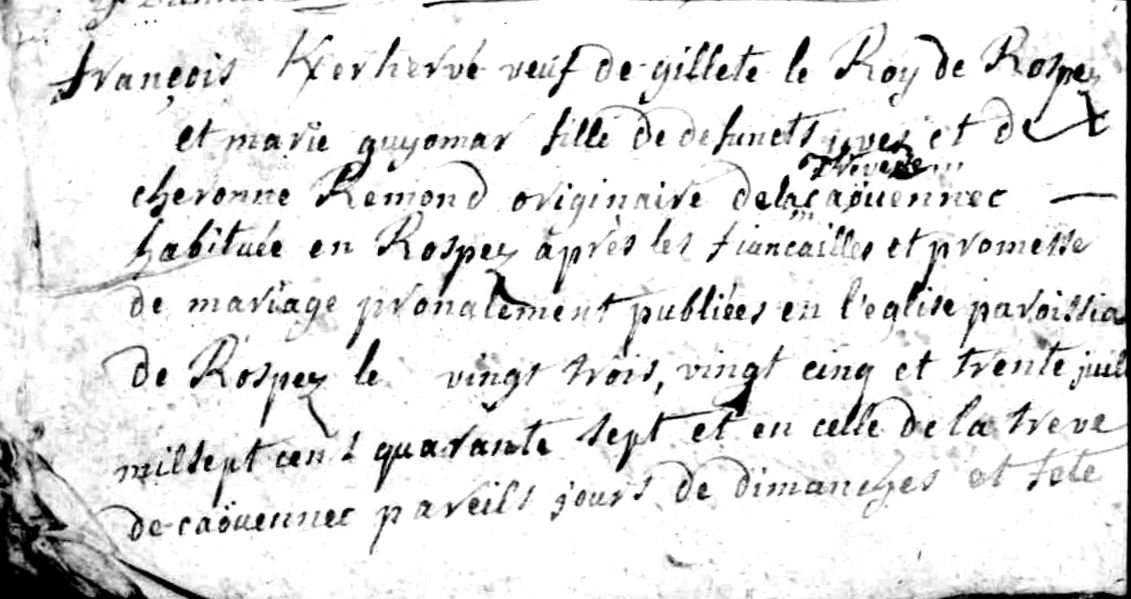 françois Kerhervé veuf de gillete le Roy de Rospez
et marie guyomar fille de defunets yves et de
treve
cheronne Remond originaire de la caöuennec
habituée en Rospez après les fiancailles et promesse
de mariage pronalement publiées en l'eglise paroissia
de Rospez le vingt trois, vingt cinq et trente juil
mil sept cent quarante sept et en celle de la treve
de caöuennec pareils jours de dimanches et fete